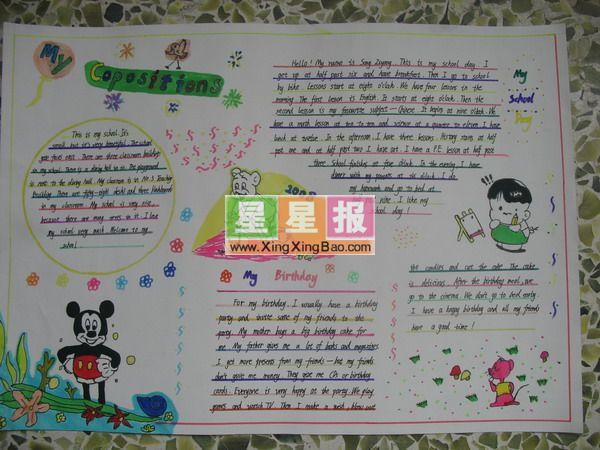 My
Copositions
Hello! My name is Song Ziyang. This is my school day. I
get up at half past six and have breakfast. Then I go to school
by bike. Lessons start at eight o'clock. We have five lessons in the
morning. The first lesson is English. It starts at eight o'clock. Then the
second lesson is my favourite subject — Chinese. It begins at nine o'clock. We
have a math lesson at ten to ten and science at a quarter to eleven. I have
lunch at twelve. In the afternoon, I have three lessons. History starts at half
past one and at half past two, I have art. I have a P.E. lesson at half past
three. School finishes at five o'clock. In the evening, I have
dinner with my parents at six o'clock. I do
my homework and go to bed at
nine. I like my
school day!
My
School
Day
This is my school. It's
small, but it's very beautiful. The school
gate faces east. There are three classroom buildings
in my school. There is a dining hall in it. The playground
is next to the dining hall. My classroom is in No.3 Teaching
Building. There are fifty-eight desks and three blackboards
in my classroom. My school is very nice,
because there are many trees in it. I love
my school very much. Welcome to my
school!
2008
星星报
www.XingXingBao.com
My Birthday
For my birthday, I usually have a birthday
party and invite some of my friends to the
party. My mother buys a big birthday cake for
me. My father gives me a lot of books and magazines.
I get more presents from my friends — but my friends
don't give me money. They give me CDs or birthday
cards. Everyone is very happy at the party. We play
games and watch TV. Then I make a wish, blow out
the candles and cut the cake. The cake
is delicious. After the birthday meal, we
go to the cinema. We don't go to bed early.
I have a happy birthday and all my friends
have a good time!